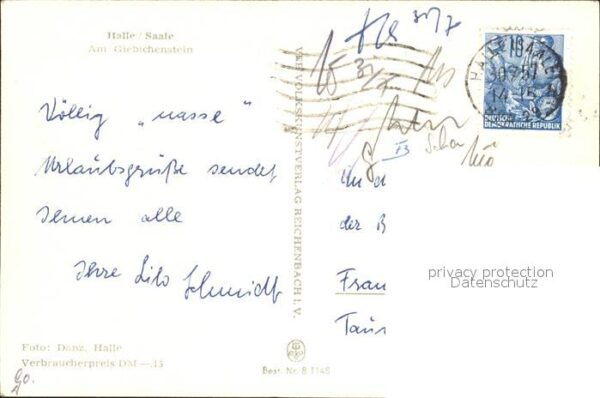 Halle / Saale
Am Giebichenstein
Völlig „nasse"
Urlaubsgrüße sendet
Ihnen alle
Ihre Lilo Schmidt
Foto: Danz, Halle
Verbraucherpreis DM —.15
VEB VOLKSKUNSTVERLAG REICHENBACH I. V.
Best. Nr. B 1148
30/7
HALLE (SAALE)
DEUTSCHE
DEMOKRATISCHE REPUBLIK
An d
der B
Frau
Taun
privacy protection
Datenschutz